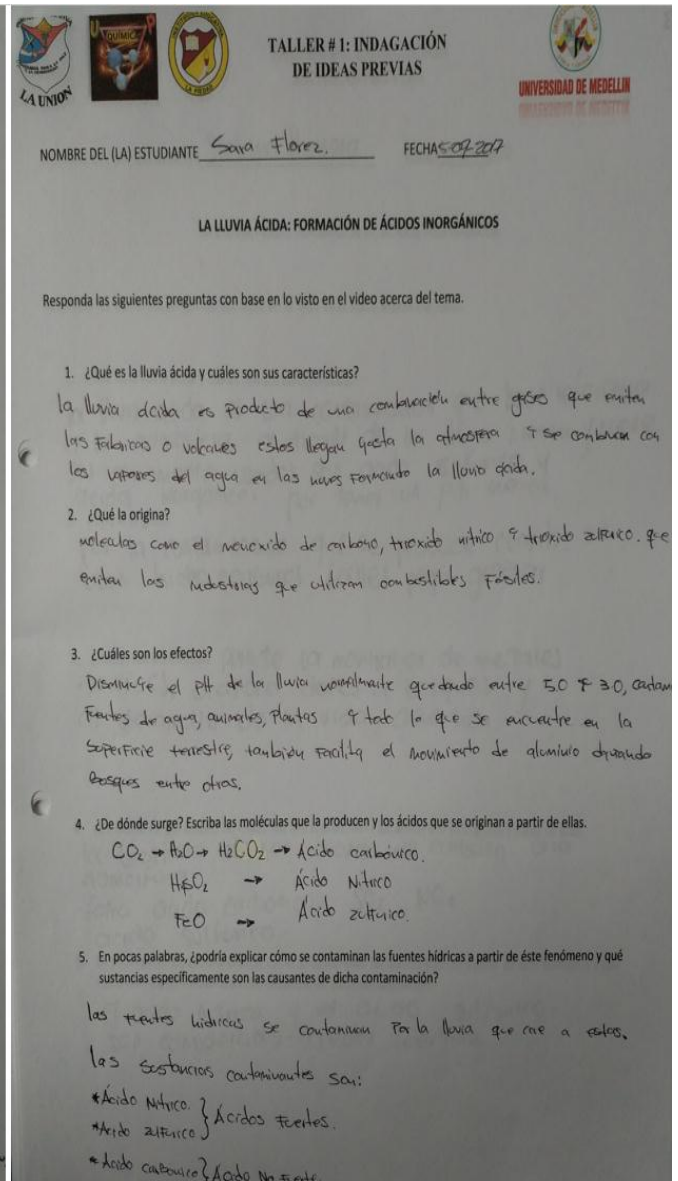 TALLER # 1: INDAGACIÓN
DE IDEAS PREVIAS
QUÍMICA
LA UNION
UNIVERSIDAD DE MEDELLIN
NOMBRE DEL (LA) ESTUDIANTE Sara Florez. FECHA 5-09-2017
LA LLUVIA ÁCIDA: FORMACIÓN DE ÁCIDOS INORGÁNICOS
Responda las siguientes preguntas con base en lo visto en el video acerca del tema.
1. ¿Qué es la lluvia ácida y cuáles son sus características?
la lluvia ácida es producto de una combinación entre gases que emiten
las Fabricas o volcanes estos llegan hasta la atmosfera y se combinan con
los vapores del agua en las nuves Formando la lluvia ácida.
2. ¿Qué la origina?
moleculas como el monoxido de carbono, trioxido nitrico y trioxido zulfurico. que
emiten las industrias que utilizan combustibles Fósiles.
3. ¿Cuáles son los efectos?
Disminuye el pH de la lluvia normalmente quedando entre 5.0 y 3.0, contam
Fuentes de agua, animales, plantas y todo lo que se encuentre en la
Superficie terrestre, también Facilita el movimiento de aluminio
bosques entre otras.
4. ¿De dónde surge? Escriba las moléculas que la producen y los ácidos que se originan a partir de ellas.
CO2 → H2O → H2CO2 → Ácido carbónico.
→ Ácido Nitrico
FeO → Acido zulfurico.
5. En pocas palabras, ¿podría explicar cómo se contaminan las fuentes hídricas a partir de éste fenómeno y qué
sustancias específicamente son las causantes de dicha contaminación?
las fuentes hidricas se contaminan Por la lluvia que cae a estas.
las sustancias contaminantes son:
*Ácido Nitrico. } Ácidos Fuertes.
*Acido zulfurico
*Acido carbonico } Acido No Fuerte.